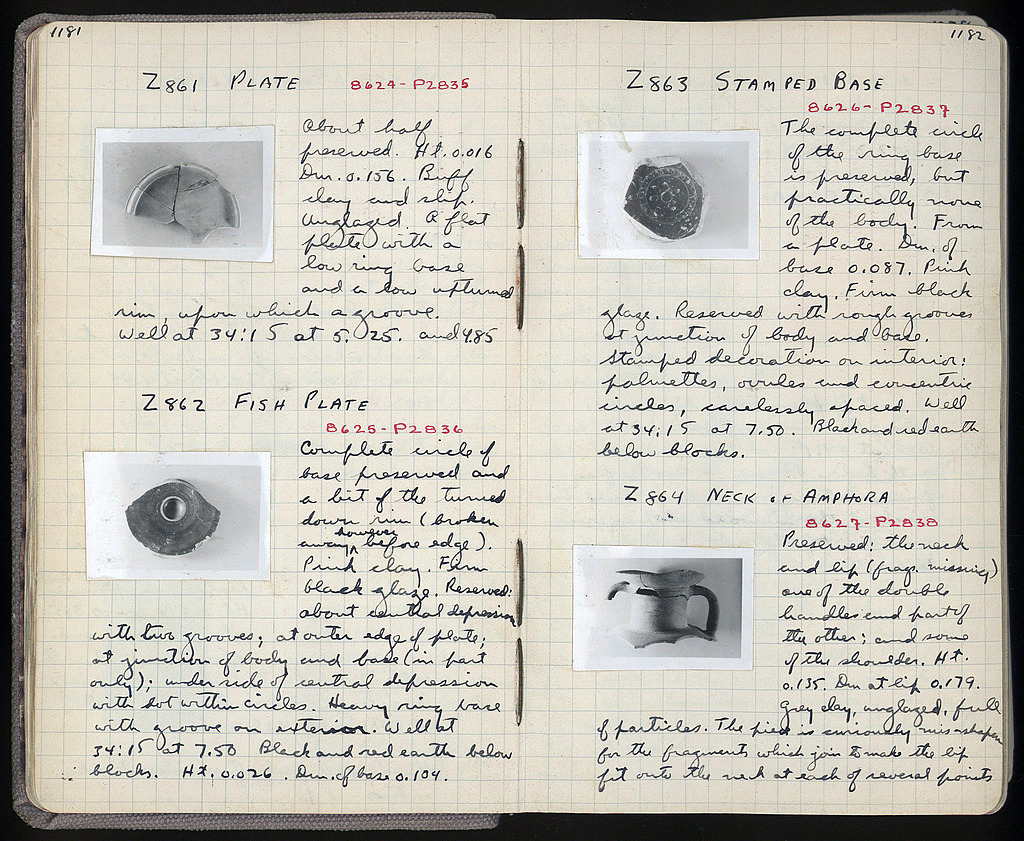 1181
Z861 PLATE 8624-P2835
About half
preserved. Ht. 0.016
Dm. 0.156. Buff
clay and slip.
Unglazed. A flat
plate with a
low ring base
and a low upturned
rim, upon which a groove.
Well at 34:15 at 5.25. and 4.85
Z862 FISH PLATE
8625-P2836
Complete circle of
base preserved and
a bit of the turned
down rim (broken
however
away, before edge).
Pink clay. Firm
black glaze. Reserved:
about central depression
with two grooves; at outer edge of plate;
at junction of body and base (in part
only); under side of central depression
with dot within circles. Heavy ring base
with groove on exterior. Well at
34:15 at 7.50 Black and red earth below
blocks. Ht. 0.026. Dm. of base 0.104.
1182
Z863 STAMPED BASE
8626-P2837
The complete circle
of the ring base
is preserved, but
practically none
of the body. From
a plate. Dm. of
base 0.087. Pink
clay. Firm black
glaze. Reserved with rough grooves
at junction of body and base.
Stamped decoration on interior:
palmettes, ovules and concentric
circles, carelessly spaced. Well
at 34:15 at 7.50. Black and red earth
below blocks.
Z864 NECK OF AMPHORA
8627-P2838
Preserved: the neck
and lip (frags. missing)
one of the double
handles and part of
the other; and some
of the shoulder. Ht.
0.135. Dm at lip 0.179.
Grey clay, unglazed, full
of particles. The piece is curiously mis-shapen
for the fragments which join to make the lip
fit onto the neck at each of several points